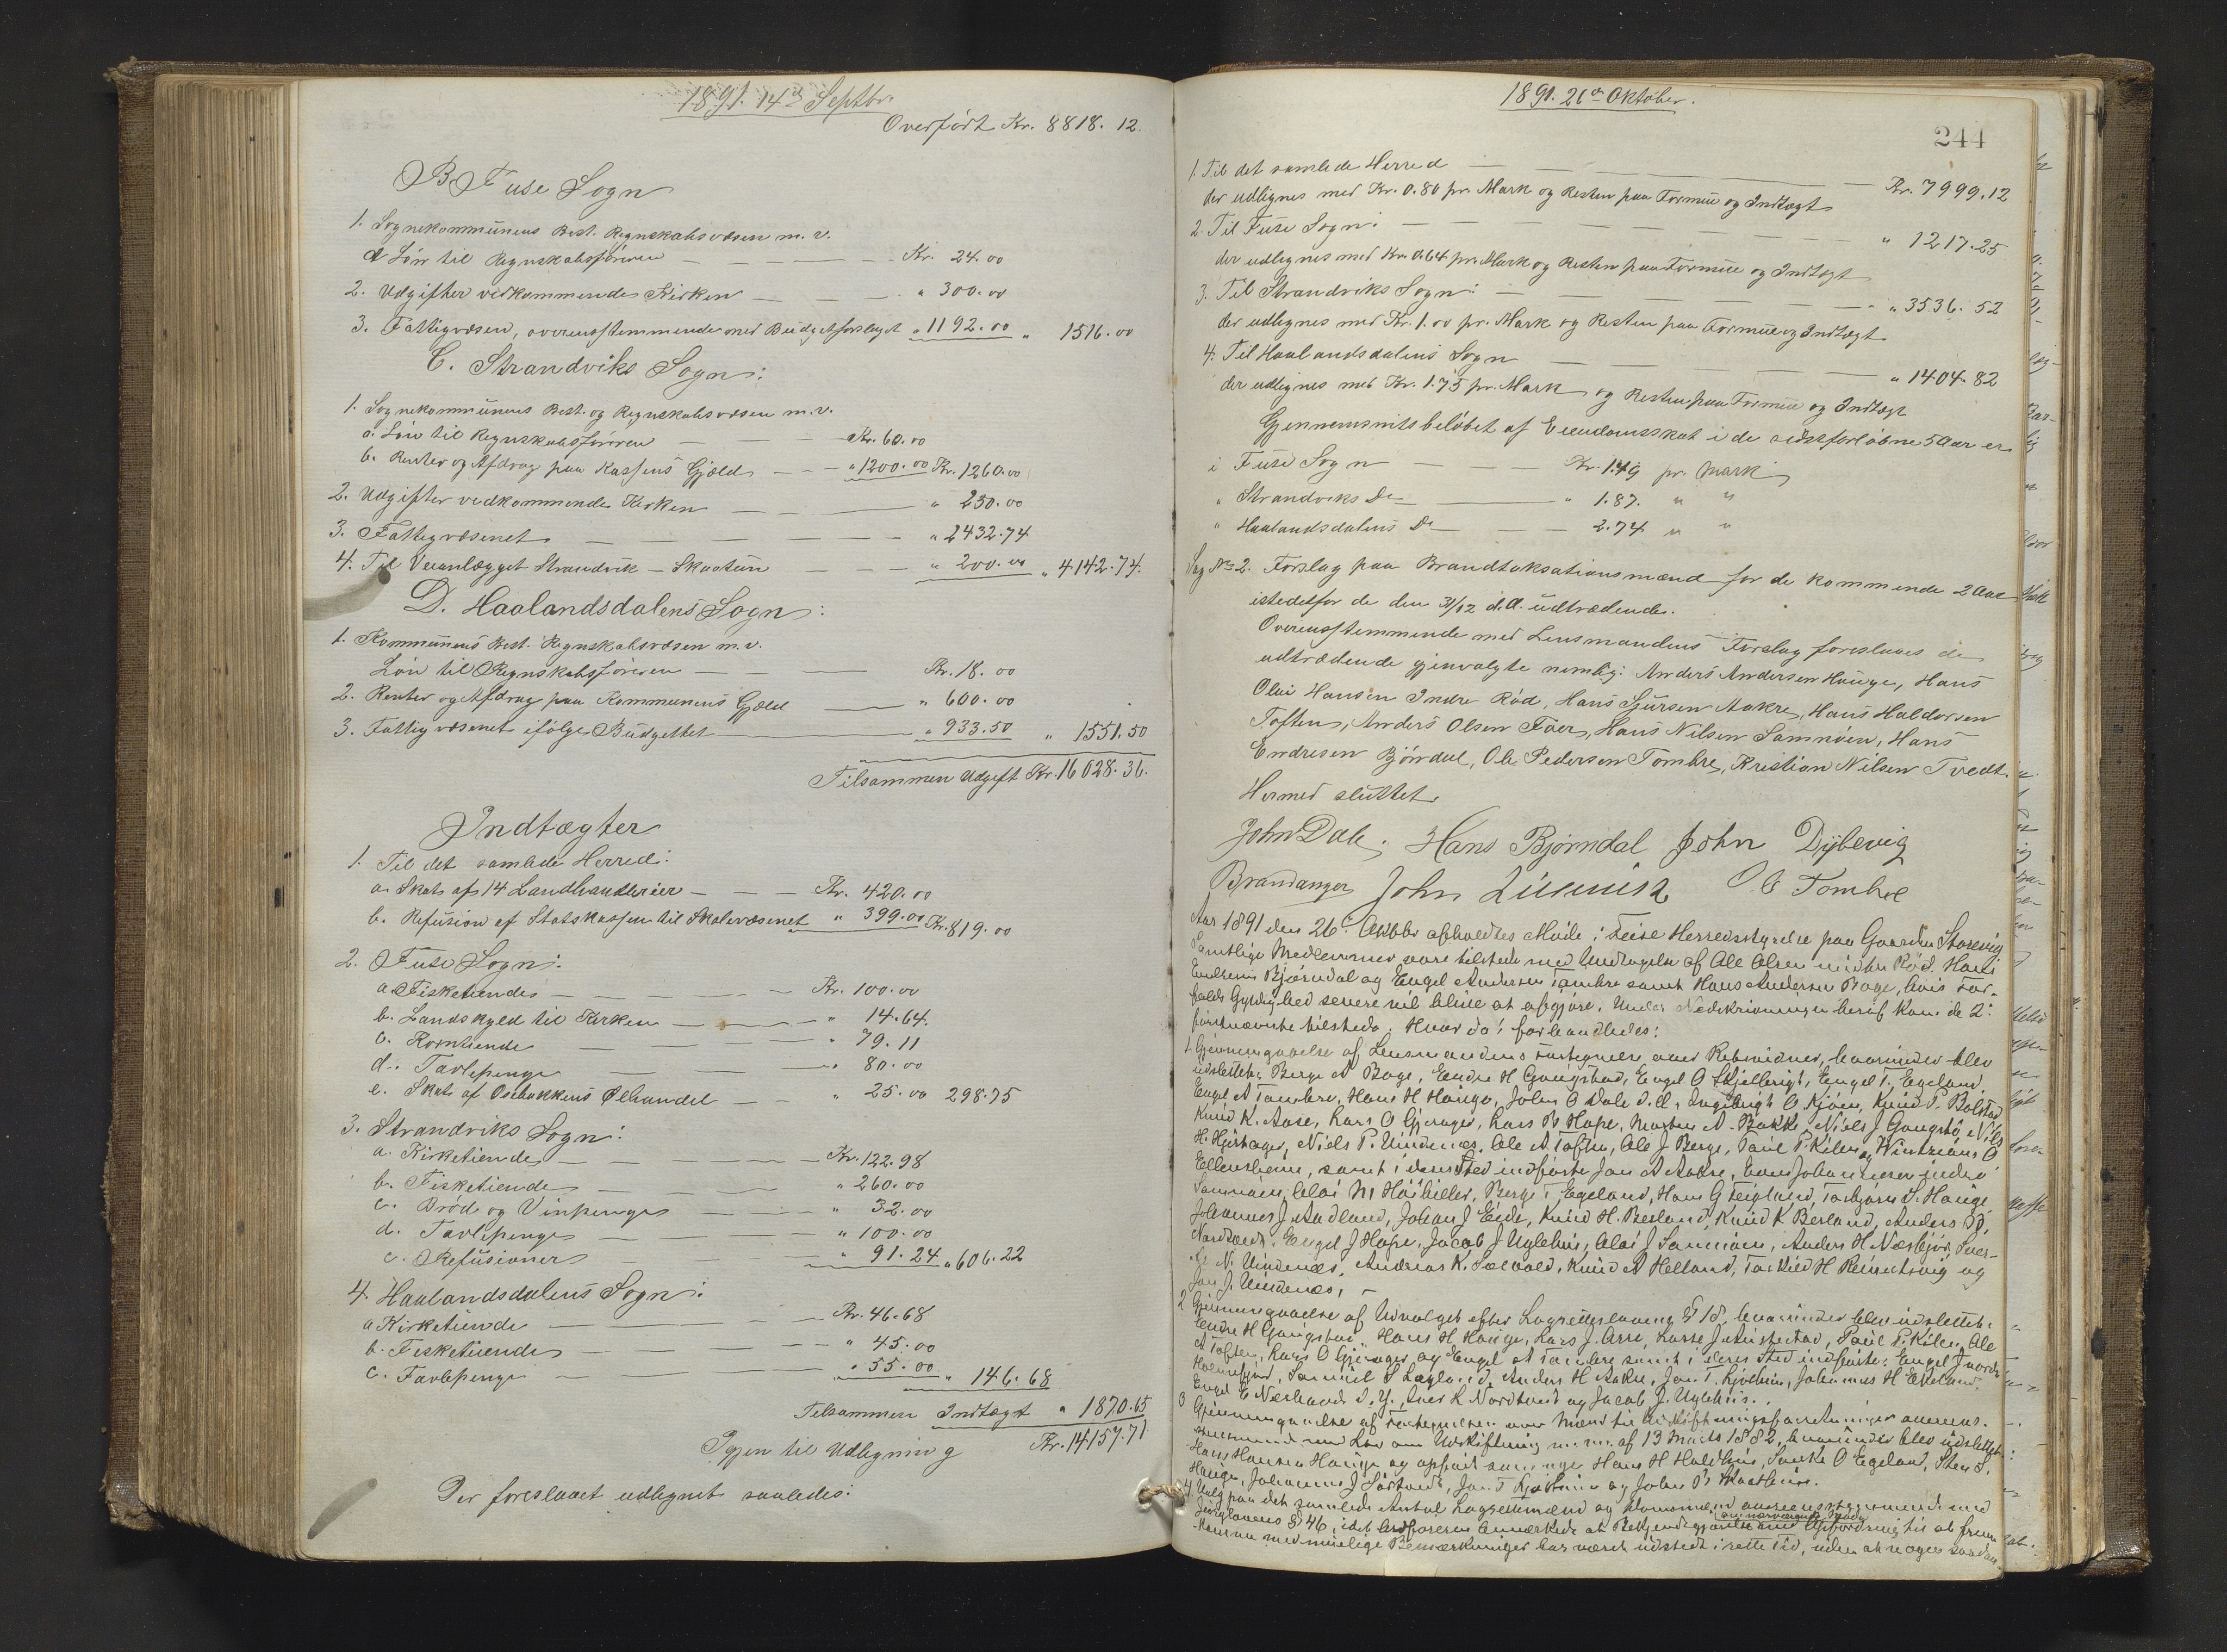 1891. 14de Septbr.
Overført Kr. 8818. 12.
B. Fuse Sogn
1. Sognekommunens Best. Regnskabsvæsen m. v.
a Løn til Regnskabsføreren — — — — Kr. 24.00
2. Udgifter vedkommende Kirken — — — " 300.00
3. Fattigvæsen, overensstemmende med Budgetforslaget " 1192.00 " 1516.00
C. Strandviks Sogn:
1. Sognekommunens Best. og Regnskabsvæsen m. v.
a. Løn til Regnskabsføreren — — — Kr. 60.00
b. Renter og Afdrag paa Kassens Gjæld — — " 1200.00 Kr. 1260.00
2. Udgifter vedkommende Kirken — — — " 250.00
3. Fattigvæsenet — — — — — " 2432.74
4. Til Veianlægget Strandvik — Skaatun — — — " 200.00 " 4142.74.
D. Haalandsdalens Sogn:
1. Kommunens Best. Regnskabsvæsen m. v.
Løn til Regnskabsføreren — — — Kr. 18.00
2. Renter og Afdrag paa Kommunens Gjæld — " 600.00
3. Fattigvæsenet ifølge Budgettet — " 933.50 " 1551.50
Tilsammen Udgift Kr. 16028.36.
Indtægter
1. Til det samlede Herred:
a. Skat af 14 Landhandlerier — — — Kr. 420.00
b. Refusion af Statskassen til Skolevæsenet " 399.00 Kr. 819.00
2. Fuse Sogn:
a. Fisketiende — — — — — Kr. 100.00
b. Landskyld til Kirken — — — " 14.64.
c. Korntiende — — — " 79.11
d. Tavlepenge — — — " 80.00
e. Skat af Osebakkens Ølhandel — — " 25.00 298.75
3. Strandviks Sogn:
a. Kirketiende — — — — Kr. 122.98
b. Fisketiende — — — " 260.00
c. Brød og Vinpenge — — — " 32.00
d. Tavlepenge — — — " 100.00
e. Refusioner — — — " 91.24 " 606.22
4. Haalandsdalens Sogn:
a Kirketiende — — — — Kr. 46.68
b. Fisketiende — — — — " 45.00
c. Tavlepenge — — — " 55.00 " 146.68
Tilsammen Indtægt " 1870.65
Igjen til Udligning Kr. 14157.71
Der foreslaaet udlignet saaledes:
1891. 26de Oktober.
244
1. Til det samlede Herred — — — Kr. 7999.12
der udlignes med Kr. 0.80 pr. Mark og Resten paa Formue og Indtægt
2. Til Fuse Sogn: — — — " 1217.25
der udlignes med Kr. 0.64 pr. Mark og Resten paa Formue og Indtægt
3. Til Strandviks Sogn: — — — " 3536.52
der udlignes med Kr. 1.00 pr. Mark og Resten paa Formue og Indtægt
4. Til Haalandsdalens Sogn — — — " 1404.82
der udlignes med Kr. 1.75 pr. Mark og Resten paa Formue og Indtægt
Gjennemsnitsbeløbet af Eiendomsskat i de sidstforløbne 5 Aar er
i Fuse Sogn — — — Kr. 1.49 pr. Mark
" Strandviks Do — " 1.87. " "
" Haalandsdalens Do — — 2.74 " "
Sag No 2. Forslag paa Brandtaksationsmænd for de kommende 2 Aar
istedetfor de den 31/12 d. A. udtrædende.
Overensstemmende med Lensmandens Forslag foreslaaes de
udtrædende gjenvalgte nemlig: Anders Andersen Hauge, Hans
Olai Hansen Indre Rød, Hans Sjursen Aakre, Hans Haldorsen
Toften, Anders Olsen Foer, Hans Nilsen Samnøen, Hans
Endresen Bjørndal, Ole Pedersen Tombre, Kristian Nilsen Tvedt.
Hermed sluttet
John Dale. Hans Bjørndal John Dybevig
Brandanger John Ole Tombre
Aar 1891 den 26. Oktbr afholdtes Møde i Fuse Herredsstyrelse paa Gaarden Storevig
Samtlige Medlemmer vare tilstede med Undtagelse af Ole Olsen Rød, Hans
Endresen Bjørndal og Engel Andersen Tombre samt Hans Andersen Boge, hvis For-
falds Gyldighed senere vil blive at afgjøre. Under Nedskrivningen heraf kom de 2
førstnævnte tilstede. Hvor da forhandledes:
1. Gjennemgaaelse af Lensmandens Fortegnelse over hvorunder blev
udslettet: Berge A Boge, Endre H Gangstad, Engel O Skjelbreigt, Engel T. Egeland,
Engel A Tombre, Hans H Hauge, John O Dale d. æ., Ingebrigt O Kjøen, Knud P. Bolstad
Knud K. Aase, Lars O Gjerager, Lars N Hope, Morten A. Bakke, Niels J Gangstø, Nils
H. Hjertager, Niels P. Vindenæs, Ole A Toften, Ole J Berge, Paul P Kilen og O
Ellenheim, samt i deres Sted indførte Jon A Aakre, Hans Johannesen indre
Samnøen, Olai M Berge T Egeland, Hans G Teigland, Torbjørn S. Hauge
Johannes J Aadland, Johan J Eide, Knud H. Berland, Knud K Berland, Anders
Nordtvedt, Engel J Hope, Jacob J Uglehus, Olai J Samnøen, Anders H Sver-
N. Vindenæs, Andreas K. Sælvold, Knud A Helland, Torkild H og
Jon J. Vindenæs, —
2 Gjennemgaaelse af Udvalget efter Lagretteslovens § 18, hvorunder blev udslettet:
Endre H Gangstad, Hans H Hauge, Lars J. Lasse J Paul P. Kilen, Ole
A Toften, Lars O Gjerager og Engel A Tombre samt i deres Sted indførte: Engel J nordre
Holmefjord, Samuel S Anders H Aakre, Jon T. Johannes H Ekeland,
Engel E d. y., Iver K Nordtvedt og Jacob J. Uglehus.
3 Gjennemgaaelse af Fortegnelsen over Mænd til Udskiftningsforretninger overens-
stemmende med Lov om Udskiftning m. m. af 13 Marts 1882, hvorunder blev udslettet:
Hans Hansen Hauge og opført som nye Hans H Haldhus, O Egeland, Sten S.
Hauge, Johannes J Jon T og John
4. Valg paa det samlede Antal Lagrettemænd og Domsmænd overensstemmende med
Jurylovens § 46, idet Ordføreren bemærkede at Bekjendtgjørelse om nærværende Møde med Opfordring til at frem-
komme med mulige Bemærkninger har været udstedt i rette Tid, uden at nogen saadan